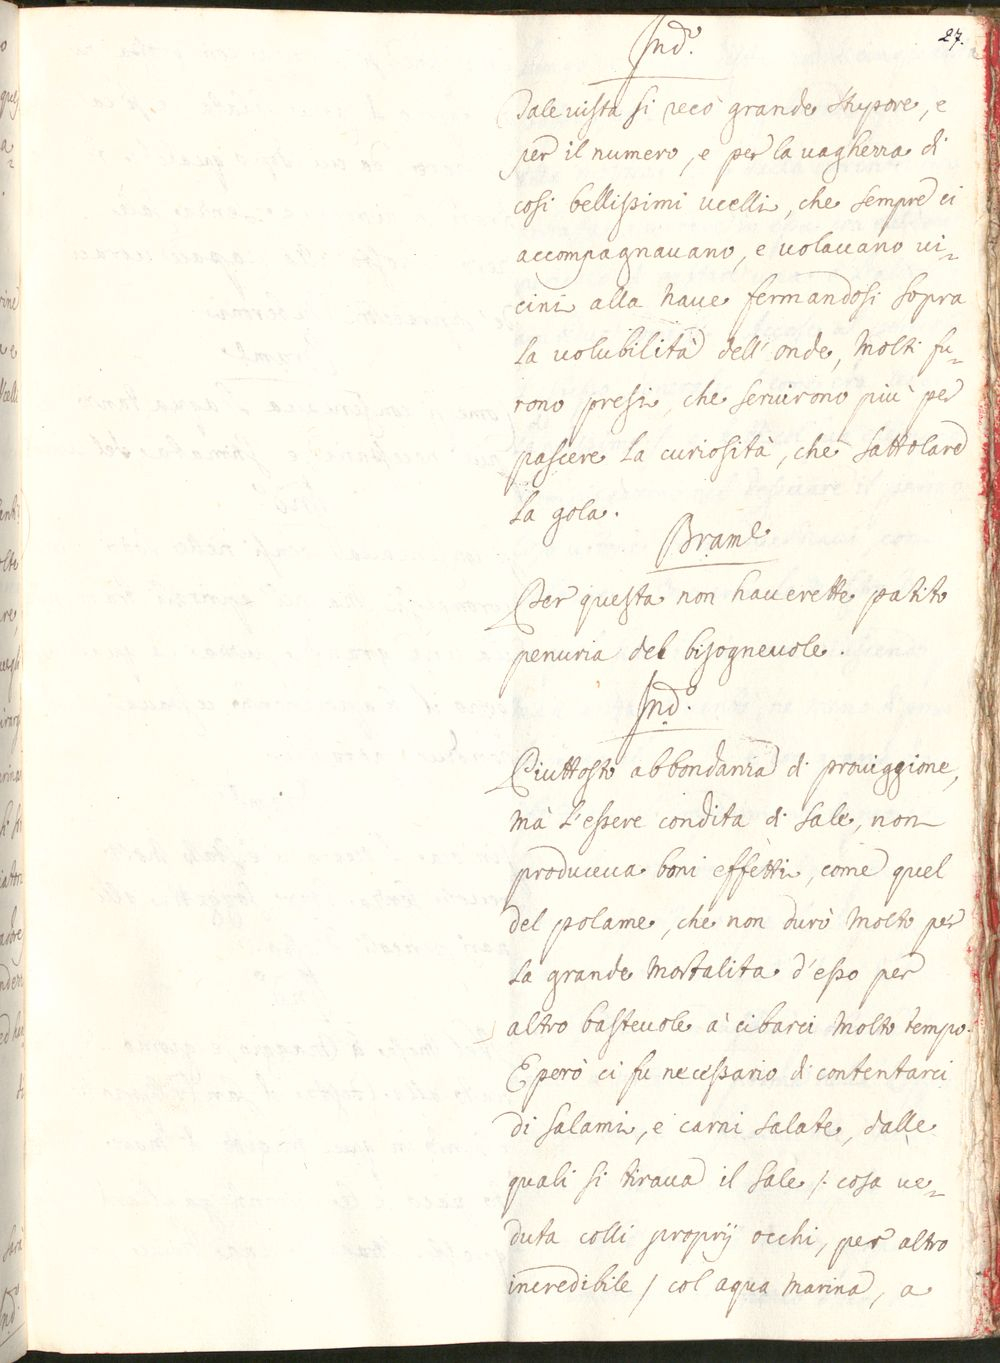 27.
Ind.º
Tale uista si recò grande stupore, e
per il numero, e per la uaghezza di
cosi bellissimi ucelli, che sempre ci
accompagnauano, e uolauano ui-
cini alla naue fermandosi sopra
la uolubilità dell'onde, molti fu-
rono presi, che seruirono più per
pascere la curiosità, che sattolare
la gola.
Bram.e
Per questa non hauerette patito
penuria del bisogneuole.
Ind.º
Piuttosto abbondanza di prouiggione,
mà l'essere condita di sale, non
produceua boni effetti, come quel
del polame, che non durò molto per
la grande mortalita d'esso per
altro basteuole à cibarci molto tempo.
E però ci fu necessario di contentarci
di salami, e carni salate, dalle
quali si tiraua il sale /: cosa ue-
duta colli proprij occhi, per altro
incredibile / col aqua marina, a